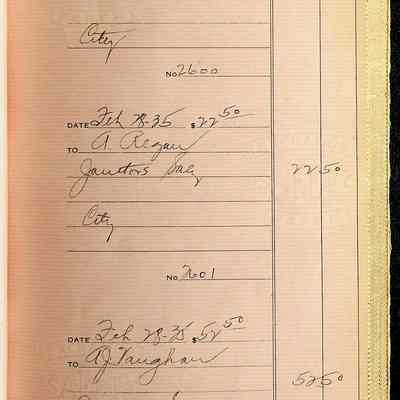 City
No 2600
DATE Feb 28-35 $22 50
TO A. Regan
Janitors Saly 22 50
City
No 2601
DATE Feb 28-35 $52 50
TO A.J. Vaughan
52 50